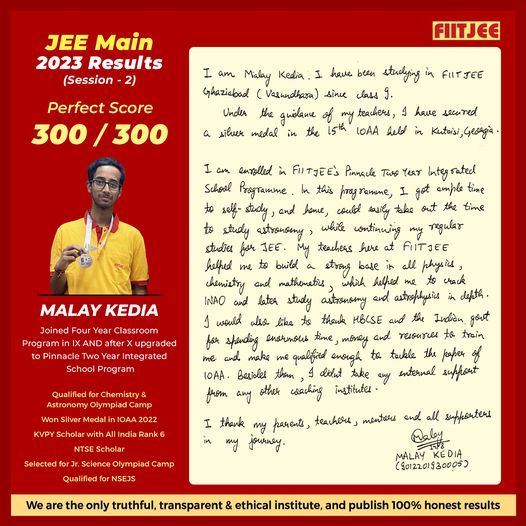 JEE Main
2023 Results
(Session - 2)
Perfect Score
300 / 300
MALAY KEDIA
Joined Four Year Classroom
Program in IX AND after X upgraded
to Pinnacle Two Year Integrated
School Program
Qualified for Chemistry &
Astronomy Olympiad Camp
Won Silver Medal in IOAA 2022
KVPY Scholar with All India Rank 6
NTSE Scholar
Selected for Jr. Science Olympiad Camp
Qualified for NSEJS
FIITJEE
I am Malay Kedia. I have been studying in FIITJEE
Ghaziabad (Vasundhara) since class 9.
Under the guidance of my teachers, I have secured
a silver medal in the 15th IOAA held in Kutaisi, Georgia.
I am enrolled in FIITJEE's Pinnacle Two Year Integrated
School Programme. In this programme, I got ample time
to self-study, and hence, could easily take out the time
to study astronomy, while continuing my regular
studies for JEE. My teachers here at FIITJEE
helped me to build a strong base in all physics,
chemistry and mathematics, which helped me to crack
INAO and later study astronomy and astrophysics in depth.
I would also like to thank HBCSE and the Indian govt
for spending enormous time, money and resources to train
me and make me qualified enough to tackle the paper of
IOAA. Besides them, I didn't take any external support
from any other coaching institutes.
I thank my parents, teachers, mentors and all supporters
in my journey.
Malay
MALAY KEDIA
(901220193 0005)
We are the only truthful, transparent & ethical institute, and publish 100% honest results